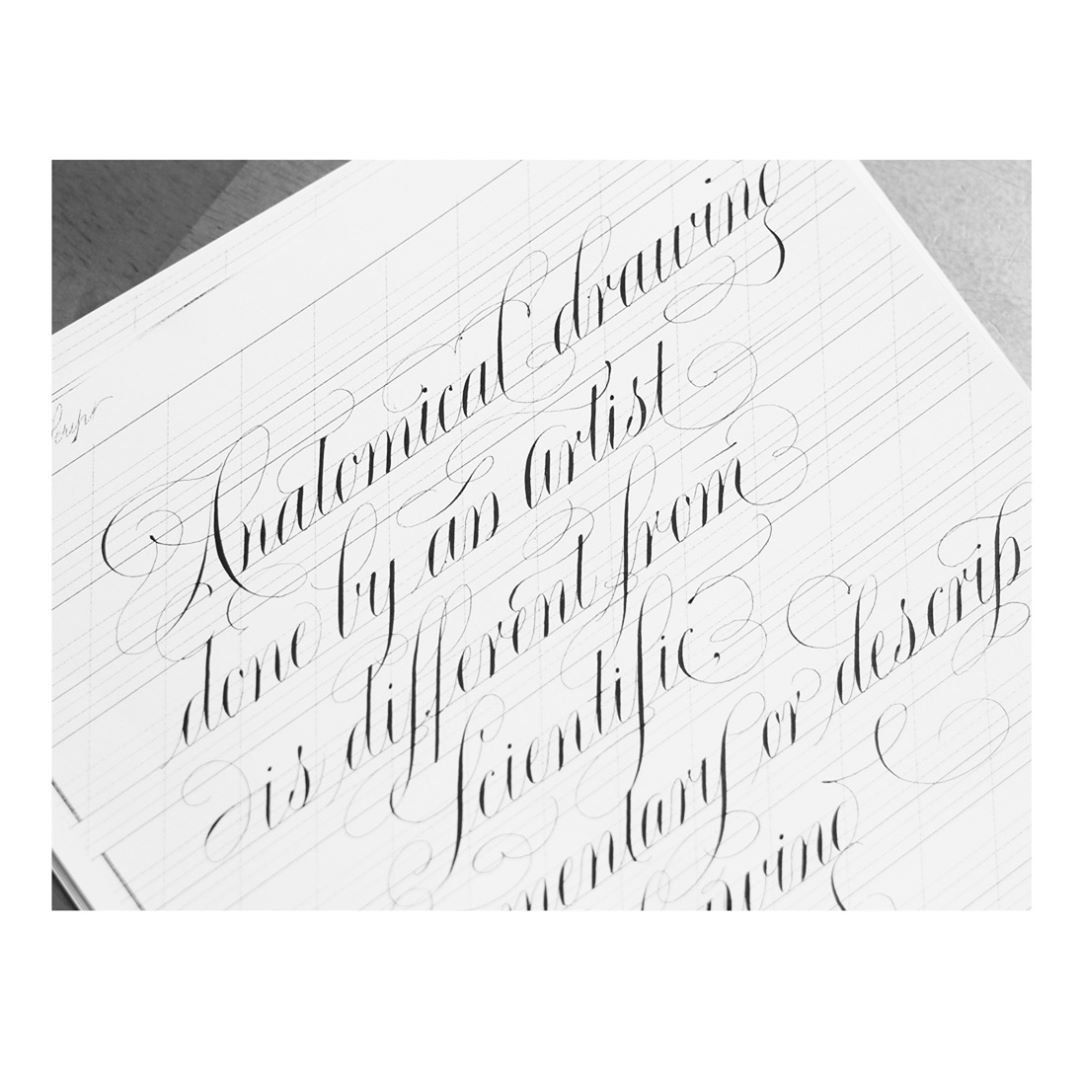 Anatomical drawing
done by an artist
is different from
scientific,
mentary or descrip